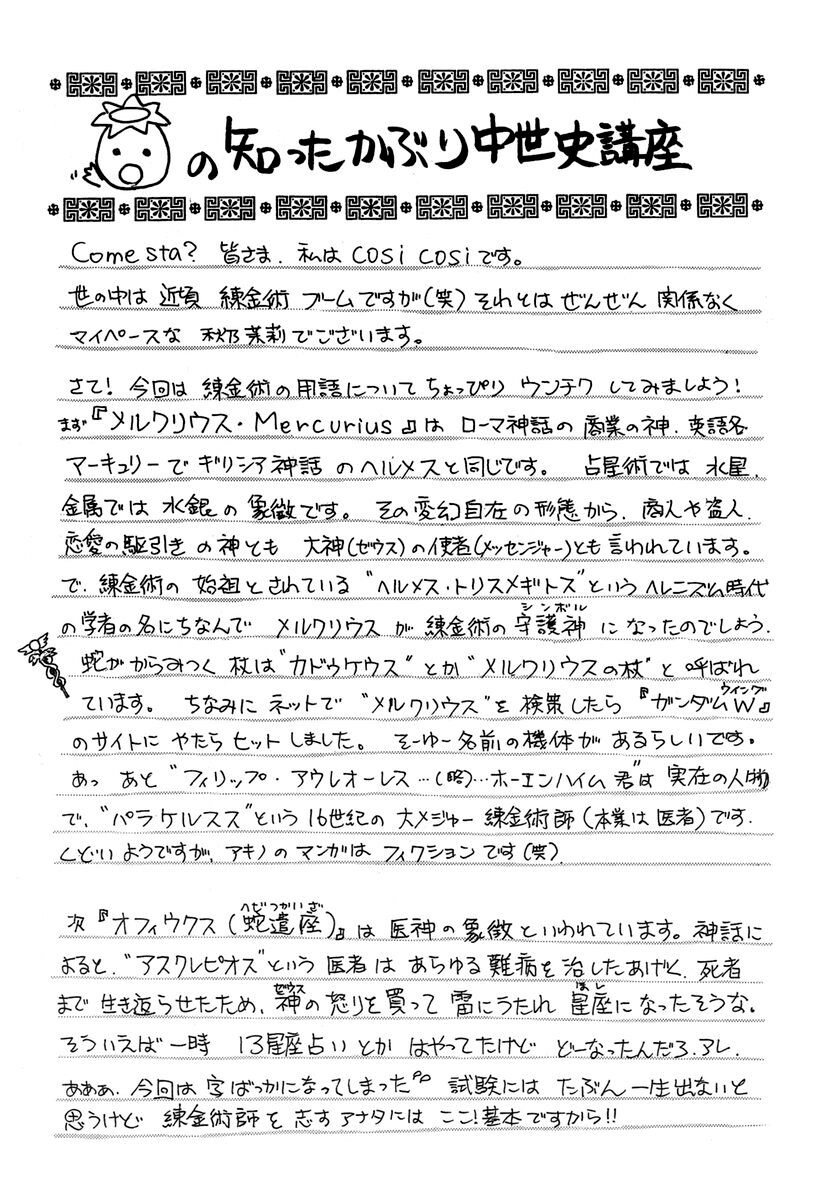 の知ったかぶり中世史講座
Come sta? 皆さま、私は cosi cosiです。
世の中は 近頃 練金術 ブームですが(笑)それとは ぜんぜん 関係なく
マイペースな 秋乃茉莉でございます。
さて! 今回は 練金術の用語について ちょっぴり ウンチク してみましよう!
まず『メルクリウス・Mercurius』は ローマ神話の 商業の神、英語名
マーキュリーで ギリシア神話 のヘルメスと同じです。 占星術では 水星、
金属では 水銀の象徴です。その変幻自在の形態から、商人や盗人、
恋愛の駆引き の神とも 大神(ゼウス)の使者(メッセンジャー)とも言われています。
で、練金術の 始祖とされている "ヘルメス・トリスメギトス"という ヘレニズム時代
の学者の名にちなんで メルクリウス が 練金術の守護神 シンボル になったのでしよう、
蛇がからみつく 杖は"カドゥケウス" とか"メルクリウスの杖"と 呼ばれ
ています。 ちなみに ネットで "メルクリウス"を 検索したら 『ガンダムW ウイング』
のサイトに やたら ヒットしました。 そーゆー名前の機体が あるらしいです。
あっ あと "フィリップ・アウレオーレス…(略)…ホーエンハイム君"は 実在の人物
で、"パラケルスス"という 16世紀の 大メジャー 練金術師(本業は医者)です。
くどいようですが、アキノのマンガは フィクションです(笑)
次『オフィウクス(蛇遣座 へびつかいざ)』は 医神の象徴といわれています。神話に
よると、"アスクレピオス"という 医者は あらゆる難病を治したあげく、死者
まで 生き返らせたため、神 ゼウス の怒りを買って 雷にうたれ 星座 ほし になったそうな。
そういえば 一時 13星座占いとか はやってたけど どーなったんだろ、アレ、
あああ、今回は字ばっかになってしまった 試験には たぶん 一生出ないと
思うけど 練金術師を志すアナタには ここ!基本ですから!!